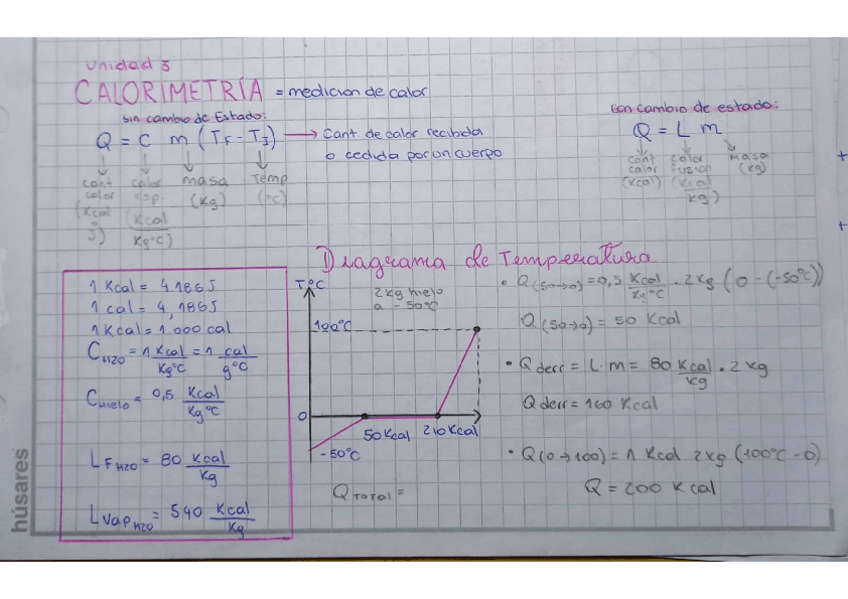 unidad 3
CALORIMETRÍA = medicion de calor
sin cambio de Estado:
Q = C m (TF - TI) → Cant de calor recibida
o cedida por un cuerpo
cant calor (Kcal J)
calor esp. (Kcal / Kg°C)
masa (Kg)
Temp (°C)
con cambio de estado:
Q = L m
cant calor (Kcal)
calor fusion (Kcal / kg)
masa (kg)
1 Kcal = 4186J
1 cal = 4,186J
1 Kcal = 1.000 cal
CH2O = 1 Kcal / Kg°C = 1 cal / g°C
CHielo = 0,5 Kcal / Kg°C
LF H2O = 80 Kcal / Kg
LVap H2O = 540 Kcal / Kg
Diagrama de Temperatura
T°C
2 kg hielo
a -50°C
100°C
0
50 Kcal 210 Kcal
-50°C
Q Total =
• Q(50→0) = 0,5 Kcal / Kg°C . 2 kg (0 - (-50°C))
Q(50→0) = 50 Kcal
• Q derr = L.m = 80 Kcal / kg . 2 kg
Q derr = 160 Kcal
• Q(0→100) = 1 Kcal 2 kg (100°C - 0)
Q = 200 K cal
húsares